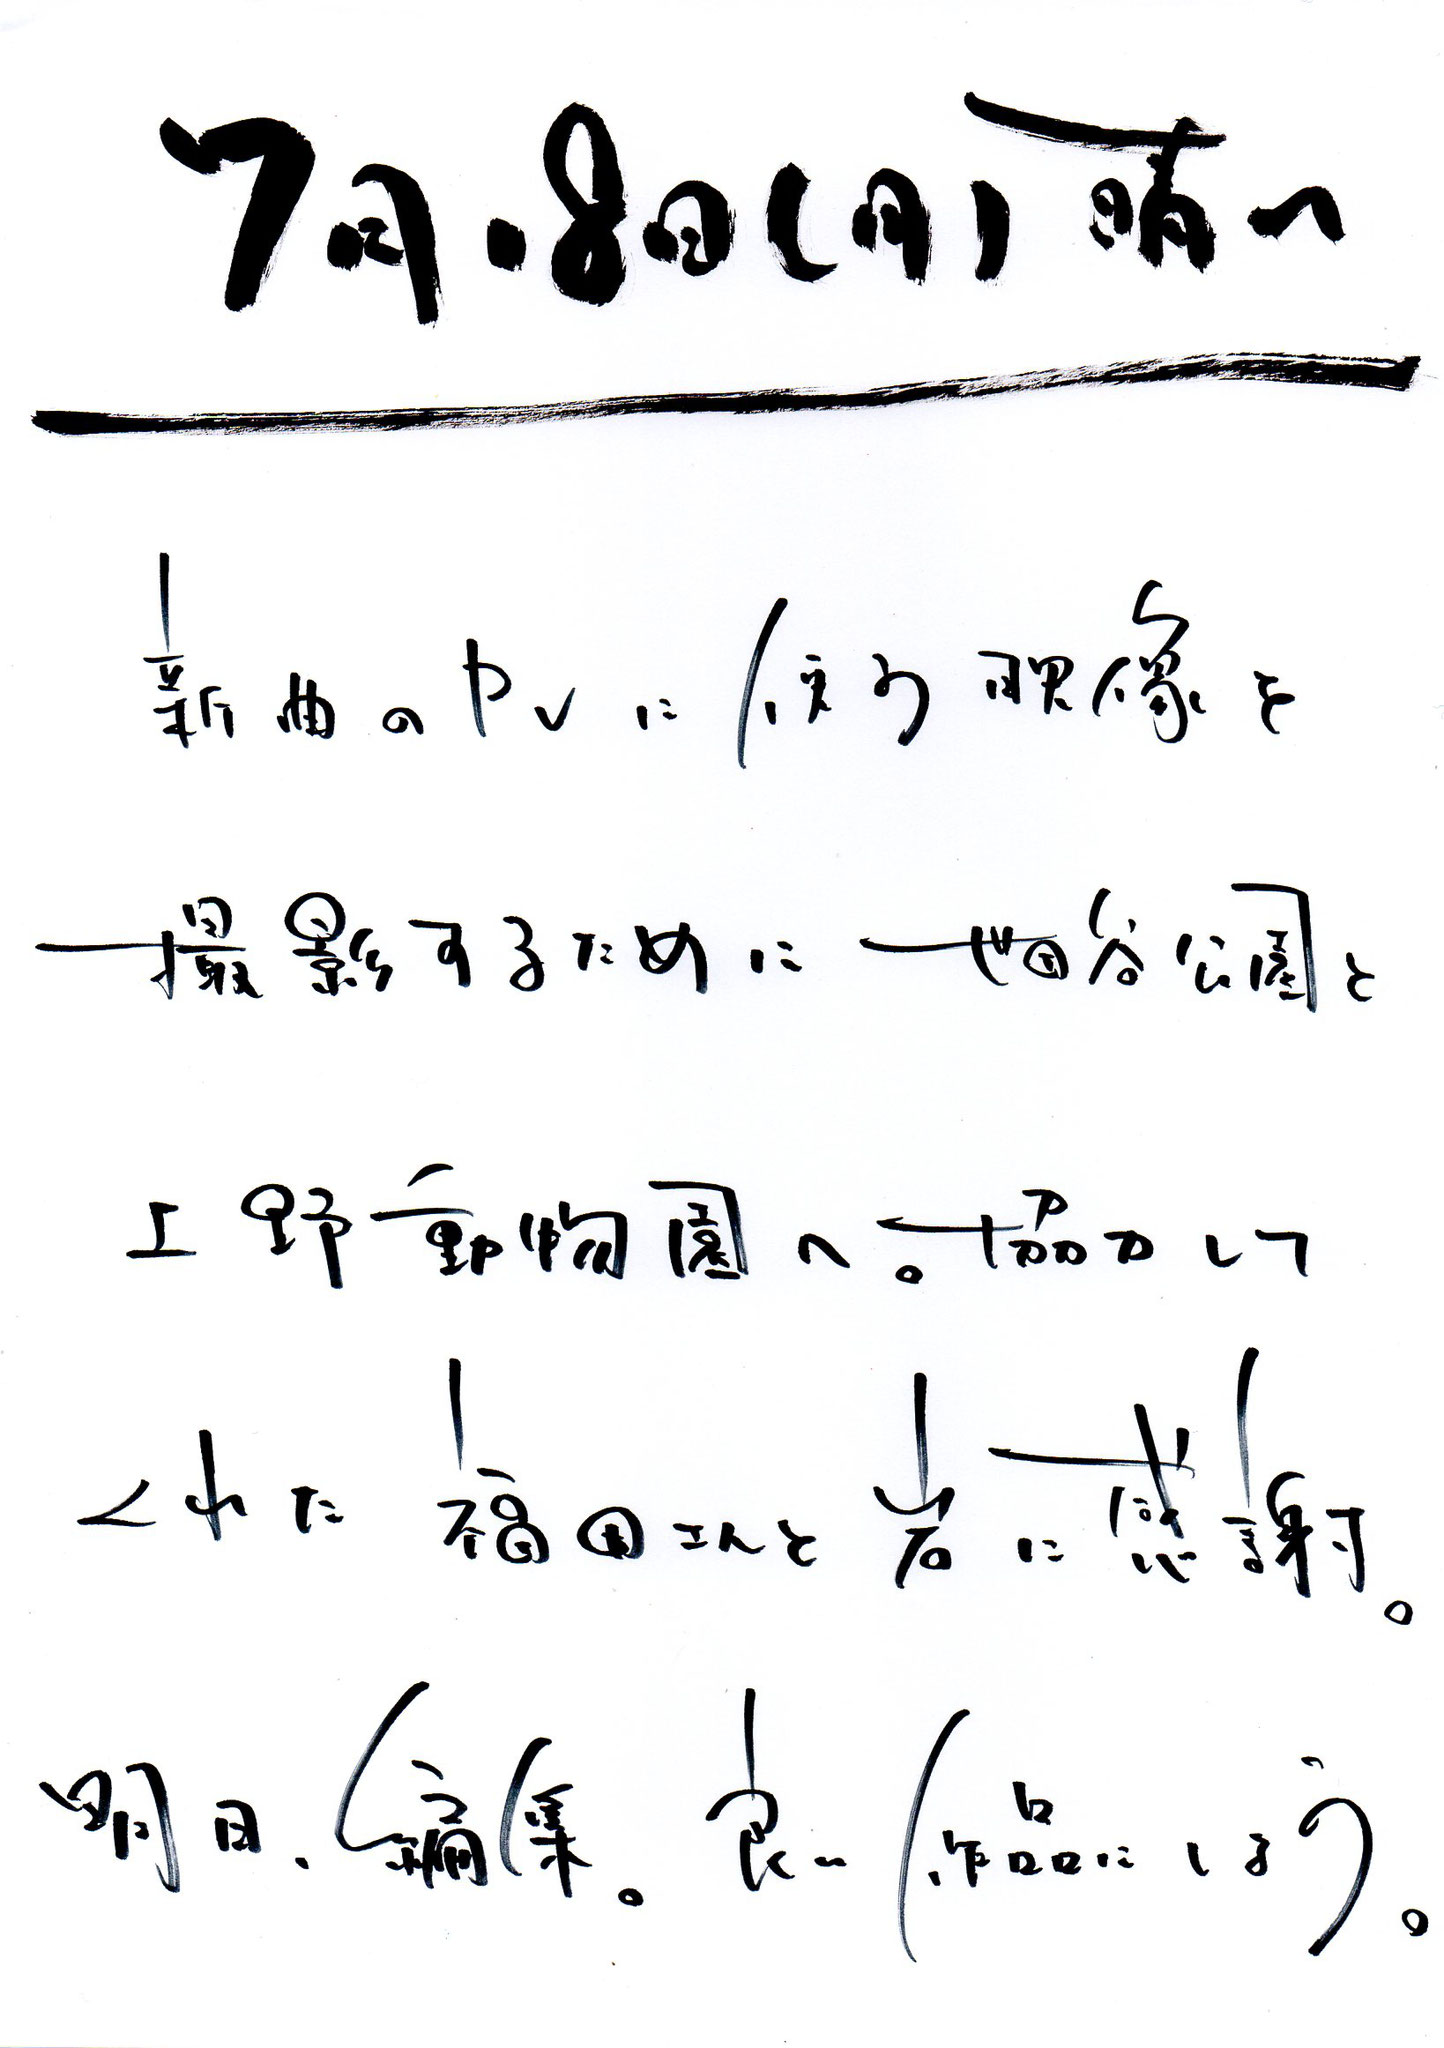 7月.8日(月)晴れ
新曲のPVに使う映像を
撮影するために世田谷公園と
上野動物園へ。協力して
くれた福田さんと岩に感謝。
明日、編集。良い作品にしよう。